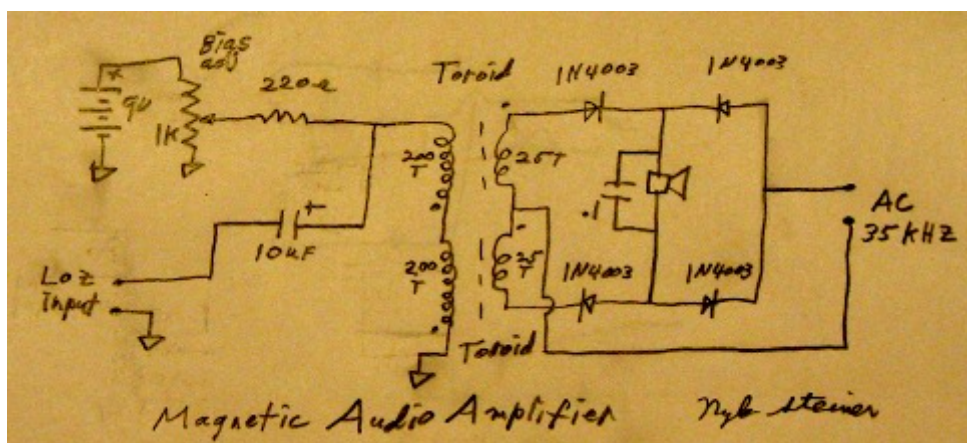 Bias
adj
+
9v
1K
220Ω
Toroid
1N4003
1N4003
200
T
25T
.1
+
10uF
Lo z
Input
200
T
25
T
1N4003
1N4003
AC
35 KHZ
Toroid
Magnetic Audio Amplifier
Nyle Steiner